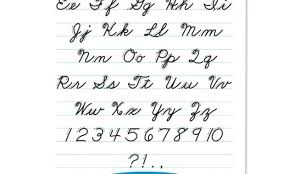 Ee Ff Gg Hh Ii
Jj Kk Ll Mm
Nn Oo Pp Qq
Rr Ss Tt Uu Vv
Ww Xx Yy Zz
1 2 3 4 5 6 7 8 9 10
?!..